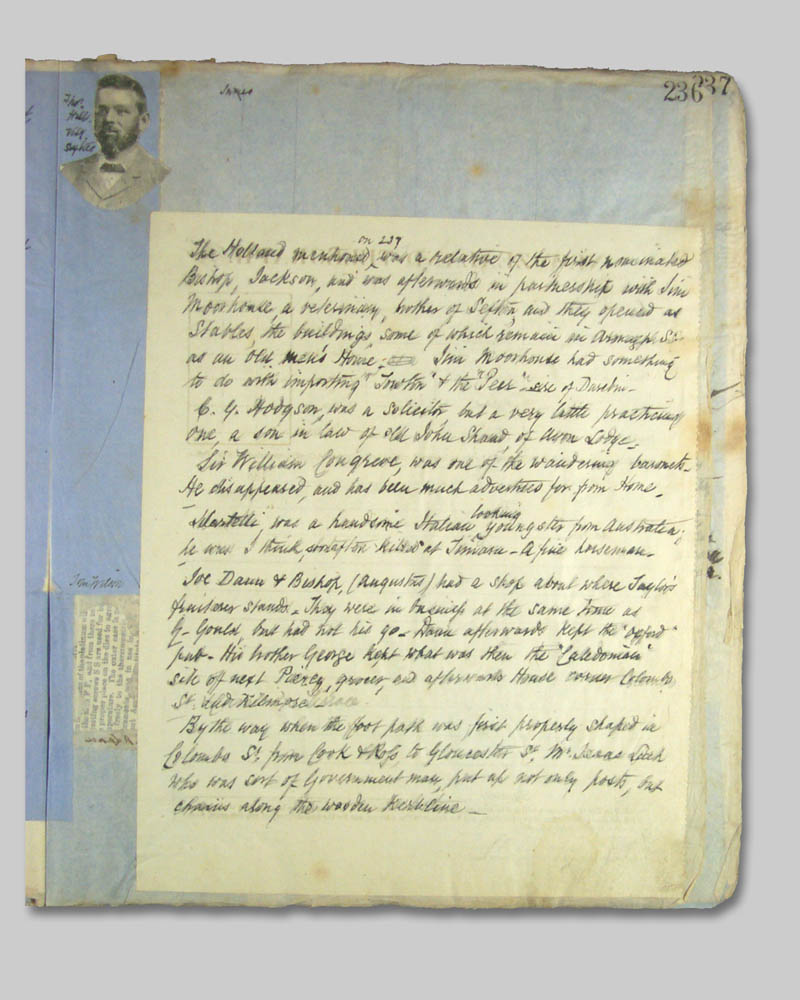 236
237
James
Thos.
Hall.
The Holland mentioned on 237, was a relative of the first nominated
Bishop, Jackson, and was afterwards in partnership with Jim
Moorhouse, a veterinary, brother of Sefton and they opened as
Stables, the buildings, some of which remain in Armagh St.
as an Old men's Home; Jim Moorhouse had something
to do with importing "Towton" & the "Peer" sire of Daredin.
C. G. Hodgson, was a solicitor but a very little practicing
one, a son in law of old John Shand of Avon Lodge.
Sir William Congreve, was one of the wandering baronets.
He disappeared, and has been much advertised for from Home.
Martelli was a handsome Italian looking youngster from Australia;
he was I think killed at Timaru - A fine horseman.
Joe Dann & Bishop, (Augustus) had a shop about where Taylor's
fruiterer stands. They were in business at the same time as
G. Gould, but had not his go. Dann afterwards kept the "Oxford"
pub. His brother George kept what was then the "Caledonian"
site of next Piercy, grocer, and afterwards House corner Colombo
St. and Kilmore
By the way when the foot path was first properly shaped in
Colombo St. from Cook & Ross to Gloucester St. Mr. Isaac Luck
who was sort of Government man, put up not only posts, but
chains along the wooden kerbline -
Tom Wilson